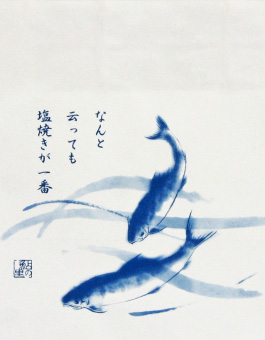 なんと
云っても
塩焼きが一番